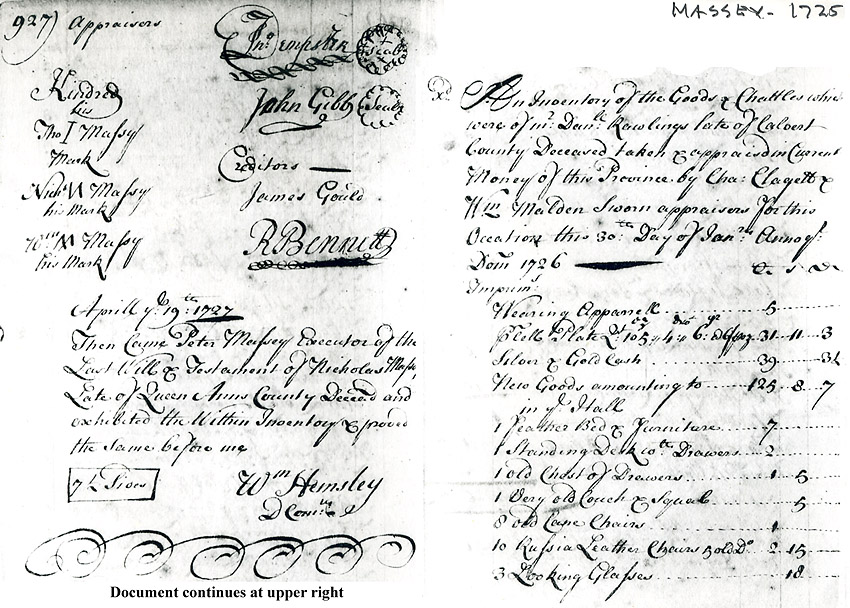 927) Appraisers
Jno Dempster Seal
Kindred John Gibb Seal
his
Tho I Massy
Mark
Creditors
Nich W Massy James Gould
his Mark
Wm M Massy RBennett
his Mark
Aprill ye 19th 1727
Then Came Peter Massey Executor of the
Last Will & Testament of Nicholas Massey
Late of Queen Anns County Deceasd and
exhibited the Within Inventory & proved
the same before me
7 1/2 Sides
Wm Hemsley
D Comry
Document continues at upper right
MASSEY - 1725
An Inventory of the Goods & Chattles which
were of mr. Danll Rawlings late of Calvert
County Deceased taken & appraisd in Current
Money of this Province by Cha: Clagett &
Wm Malden Sworn appraisers for this
Occation this 30th Day of Janry Annoq
Dom 1726
Imprim:
Wearing Apparrell 5
Plate 31 11 3
Silver & Gold Cash 39
New Goods amounting to 125 8 7
in ye Hall
1 Feather Bed & Furniture 7
1 Standing Desk wth Drawers 2
1 old Chest of Drawers 1 5
1 Very old Couch & Squab 5
8 old Cane Chairs 1
10 Russia Leather Chairs 5 old Do 2 15
3 Looking Glasses 18